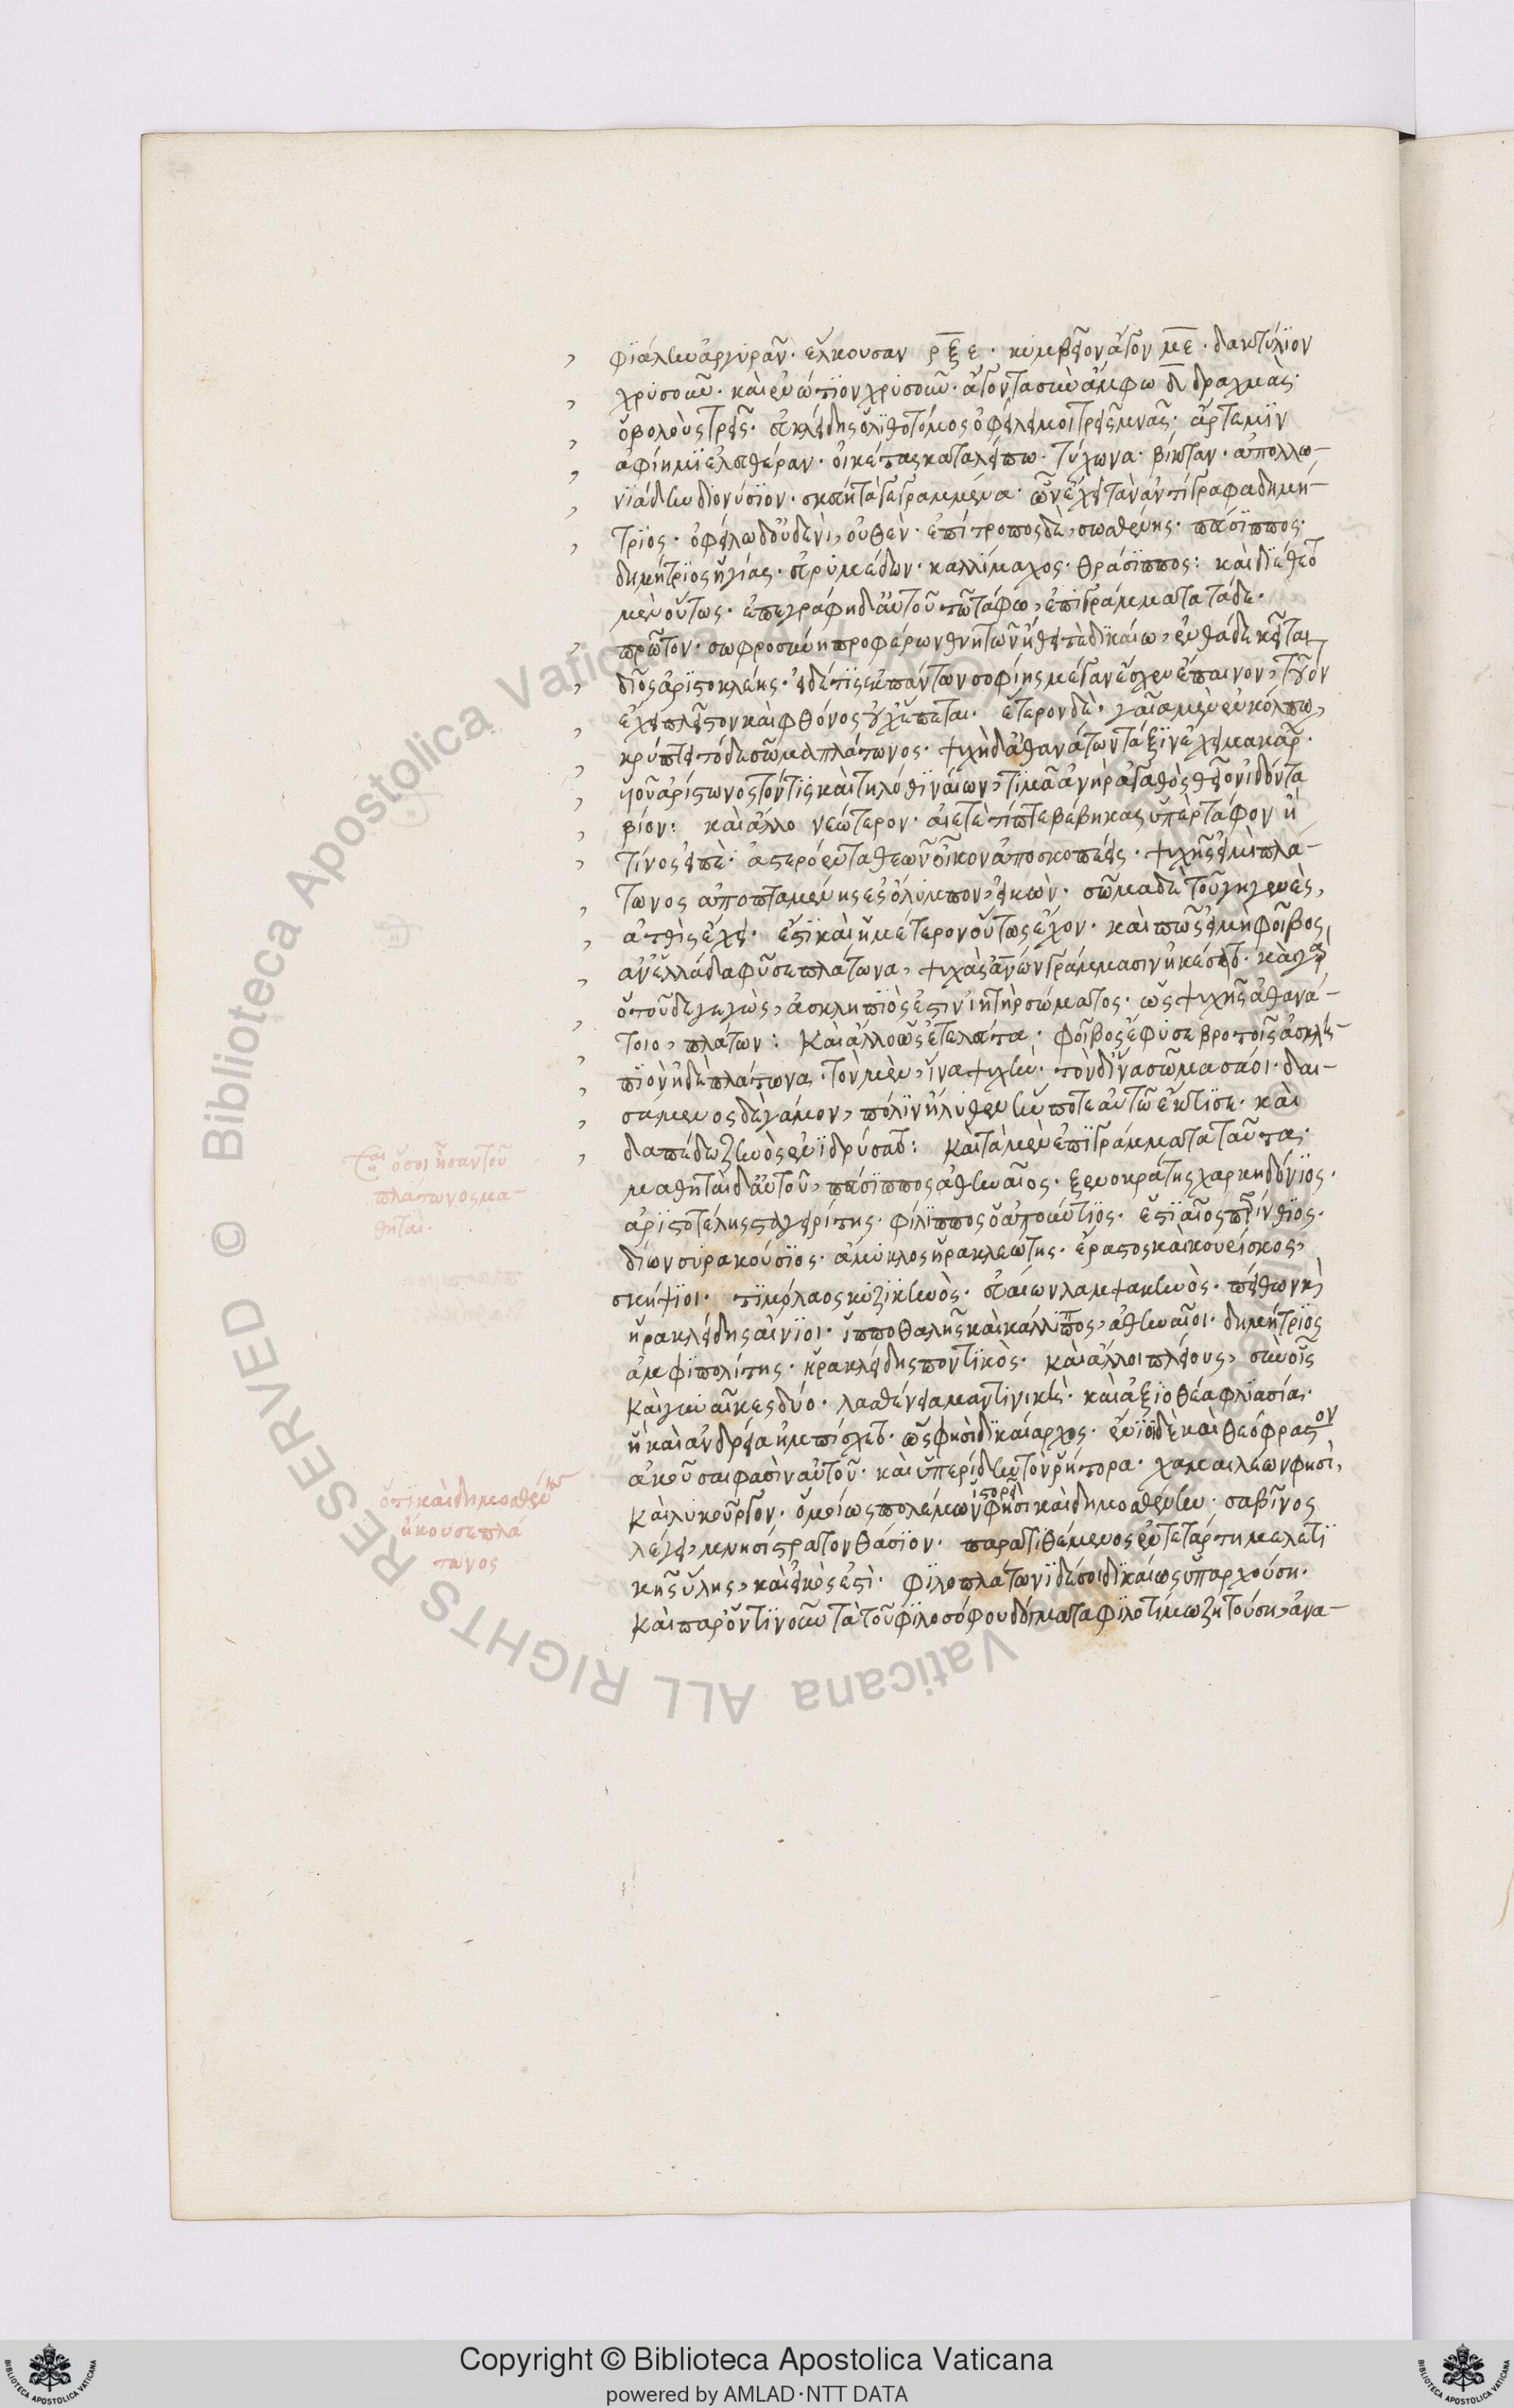 φϊάλην ἀργυρᾶν· ἕλκουσαν ρξε· κυμβεῖον ἄγον με· δακτύλϊον
χρυσοῦν· καὶ ἐνώτιον χρυσοῦν· ἄγοντα σὺν ἄμφω δ δραχμὰς·
ὀβολοὺς τρεῖς· εὐκλείδης ὁ λϊθοτόμος ὀφείλει μοι τρεῖς μνᾶς· ἄρτεμϊν
ἀφίημϊ ἐλευθέραν· οἰκέτας καταλείπω· τύχωνα· βίκταν· ἀπολλω-
νϊάδην διονύσϊον· σκεύη τὰ γεγραμμένα· ὧν ἔχει τὰ ἀντίγραφα δημή-
τρϊος· ὀφείλω δ' οὐδενὶ, οὐθὲν· ἐπίτροποι δὲ, σωσθένης· σπεύσϊππος·
δημήτρϊος ἡγίας· εὐρυμέδων· καλλίμαχος· θράσϊππος: καὶ διέθετο
μὲν οὕτως· ἐπεγράφη δ' αὐτοῦ τῶ τάφω, ἐπιγράμματα τάδε·
πρῶτον· σωφροσύνη προφέρων θνητῶν ἤθει τε δϊκαίω, ἐνθάδε κεῖται
δῖος ἀρϊστοκλέης· εἰ δέ τϊς ἐκ πάντων σοφίης μέγαν ἔσχεν ἔπαινον, τοῦτον
ἔχει πλεῖστον καὶ φθόνος οὐχ ἕπεται· ἕτερον δὲ· γαῖα μὲν ἐν κόλπω,
κρύπτει τόδε σῶμα πλάτωνος· ψυχὴ δ' ἀθανάτων τάξϊν ἔχει μακάρ·
υἱοῦ ἀρίστωνος τόν τϊς καὶ τηλόθϊ ναίων, τϊμᾶ ἀνὴρ ἀγαθὸς θεῖον ἰδόντα
βίον: καὶ ἄλλο νεώτερον· αἰετὲ τίπτε βέβηκας ὑπὲρ τάφον ἢ
τίνος εἰπὲ· ἀστερόεντα θεῶν οἶκον ἀποσκοπέεις· ψυχῆς εἰμὶ πλά-
τωνος ἀποπταμένης ἐς ὄλυμπον, εἰκὼν· σῶμα δὲ τοῦ γηγενὲς,
ἀτθὶς ἔχει· ἔστϊ καὶ ἡμέτερον οὕτως ἔχον· καὶ πῶς εἰ μὴ φοῖβος
ἀν' ἑλλάδα φῦσε πλάτωνα, ψυχὰς ἀνῶν γράμμασιν ἠκέσατο· καὶ γὰρ
ὁ τοῦδε γεγὼς, ἀσκληπϊὸς ἐστὶν ἰητὴρ σώματος· ὡς ψυχῆς ἀθανά-
τοιο, πλάτων: Καὶ ἄλλο ὡς ἐτελεύτα· φοῖβος ἔφυσε βροτοῖς ἀσκλη-
πϊὸν ἠδὲ πλάτωνα· τὸν μὲν, ἵνα ψυχὴν· τὸν δ' ἵνα σῶμα σάοι· δαι-
σάμενος δὲ γάμον, πόλϊν ἤλυθεν ἥν ποτε αὐτῶ ἔκτϊσε· καὶ
δαπέδω ζηνὸς ἐνϊδρύσατο: Καὶ τὰ μὲν ἐπϊγράμματα ταῦτα·
μαθηταὶ δ' αὐτοῦ, σπεύσϊππος ἀθηναῖος· ξενοκράτης χαρκηδόνϊος·
ἀρϊστοτέλης σταγειρίτης· φίλϊππος ὁ ὀπούντϊος· ἑστϊαῖος περίνθϊος·
δίων συρακούσϊος· ἄμυκλος ἡρακλεώτης· ἔραστος καὶ κουρίσκος,
σκήψϊοι· τϊμόλαος κυζϊκηνὸς· εὐαίων λαμψακηνὸς· πείθων καὶ
ἡρακλείδης αἴνϊοι· ἱπποθαλῆς καὶ κάλλϊππος, ἀθηναῖοι· δημήτρϊος
ἀμφϊπολίτης· ἡρακλείδης ποντϊκὸς· καὶ ἄλλοι πλείους, σὺν οἷς
καὶ γυναῖκες δύο· λασθένεια μαντϊνικὴ· καὶ ἀξϊοθέα φλϊασία·
ἣ καὶ ἀνδρεῖα ἠμπίσχετο· ὥς φησι δϊκαίαρχος· ἔνϊοι δὲ καὶ θεόφραστον
ἀκοῦσαι φασὶν αὐτοῦ· καὶ ὑπερίδην τὸν ῥήτορα· χαμαιλέων φησὶ,
καὶ λυκοῦργον· ὁμοίως πολέμων ἱστορεῖ φησὶ καὶ δημοσθένην· σαβῖνος
λέγει, μνησίστρατον θάσϊον· παρατϊθέμενος ἐν τετάρτη μελετϊ
κῆς ὕλης, καὶ εἰκὸς ἐστὶ· φϊλοπλάτωνϊ δέ σοι δϊκαίως ὑπαρχούση·
καὶ παρ' ὁντϊνοῦν τὰ τοῦ φϊλοσόφου δόγματα φϊλοτίμως ζητούση, ἀνα-
ὅσοι ἦσαν τοῦ
πλάτωνος μα-
θηταὶ·
ὅτϊ καὶ δημοσθένης
ἤκουσε πλά
τωνος
Copyright © Biblioteca Apostolica Vaticana
powered by AMLAD·NTT DATA
Biblioteca Apostolica Vaticana ALL RIGHTS RESERVED ©